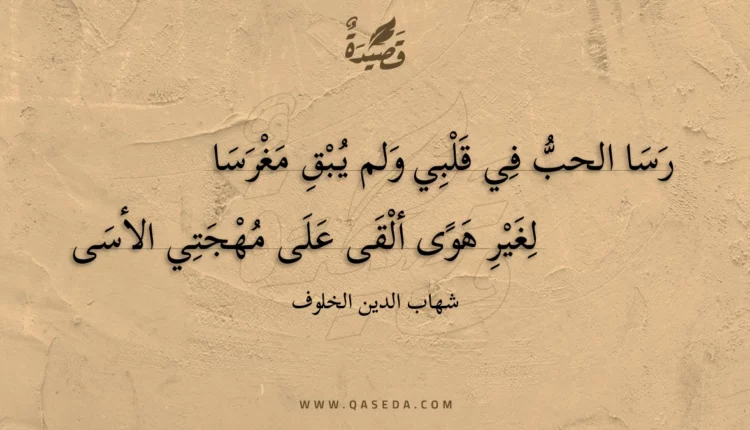 قَصِيْدَةٌ
رَسَا الحبُّ فِي قَلْبِي وَلم يُبْقِ مَغْرَسَا
لِغَيْرِ هَوًى ألْقَى عَلَى مُهْجَتِي الأسَى
شهاب الدين الخلوف
WWW.QASEDA.COM